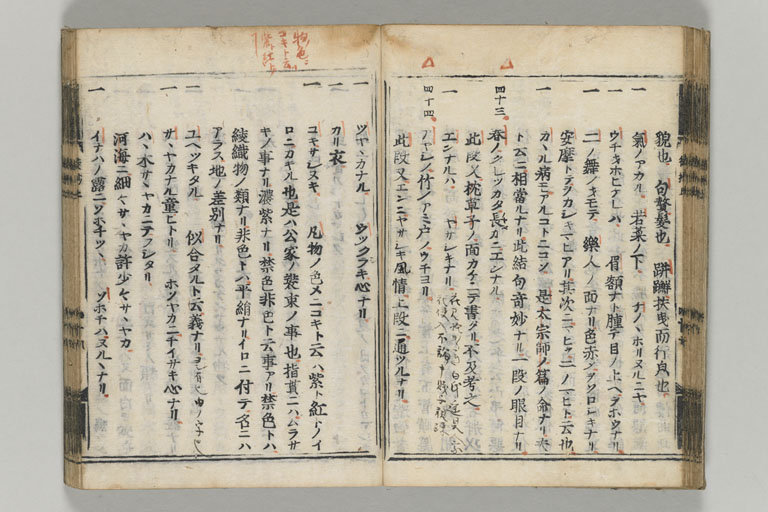 貌也 句贅髮也 跰𨇤扶曳而行皃也
一 氣ノアカル 若菜ノ下 ナノヽホリヌルニヤ
ウチキホヒアレハ 眉額ナト腫テ目ノ上ヘヲホウナリ
二ノ舞ノキモテ 樂人ノ面ナリ色赤クヲソロシキナリ
安摩トテヲカシキマヒアリ其次ニマヒヲ二ノマヒト云也
一 カヽル病モアルコトニコソ 是太宗師ノ篇ノ命ナリ夫
ト云ニ相當ルナリ此結句奇妙ナリ一段ノ眼目ナリ
四十三 春ノクレツカタ長カニエンナル
此段又枕草子ノ面カケニテ書タリ不及考之
一 エンナルハ ヤサシキナリ
四十四 アヤシノ竹ノアミ戸ノウチヨリ
此段又エンニヤサシキ風情上段ニ通ツルナリ
一 ツヤヽカナル ウツクシキ心ナリ
一 カリ衣
一 コキサシヌキ 凡物ノ色メニコキト云ハ紫ト紅トノイ
ロニカキル也是ハ公家ノ裝束ノ事也指貫ニハムラサ
キノ事ナリ濃紫ナリ禁色非色ト云事アリ禁色トハ
綾織物ノ類ナリ非色トハ平絹ナリイロニ付テ名ニハ
アラス地ノ差別ナリ
一 ユヘツキタル 似合タルト云義ナリ
一 サヽヤカナル童ヒトリ ホソヤカニチイサキ心ナリ
ハヽ木サヽヤカニテフシタリ
河海ニ細ヤサヽヤカ許少ヤサヽヤカ
一 イナハノ露ニソホチツヽ ソホチハヌルヽナリ
物色ニ
コキト云ハ
紫ト紅ト